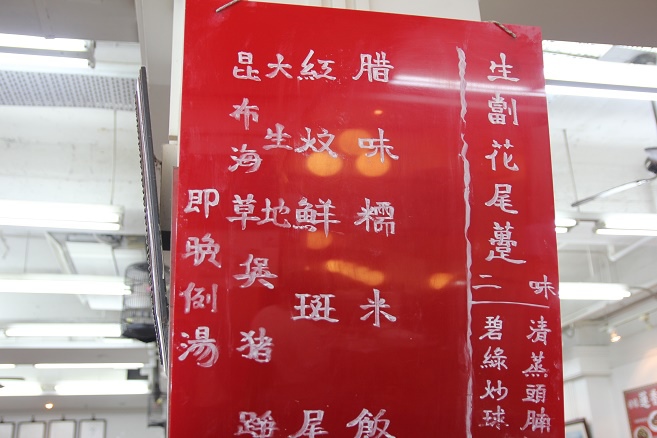 生劏花尾躉
二味
清蒸頭腩
碧綠炒球
腊味糯米飯
紅炆鮮斑尾
大生地
昆布海草煲猪
即晚例湯